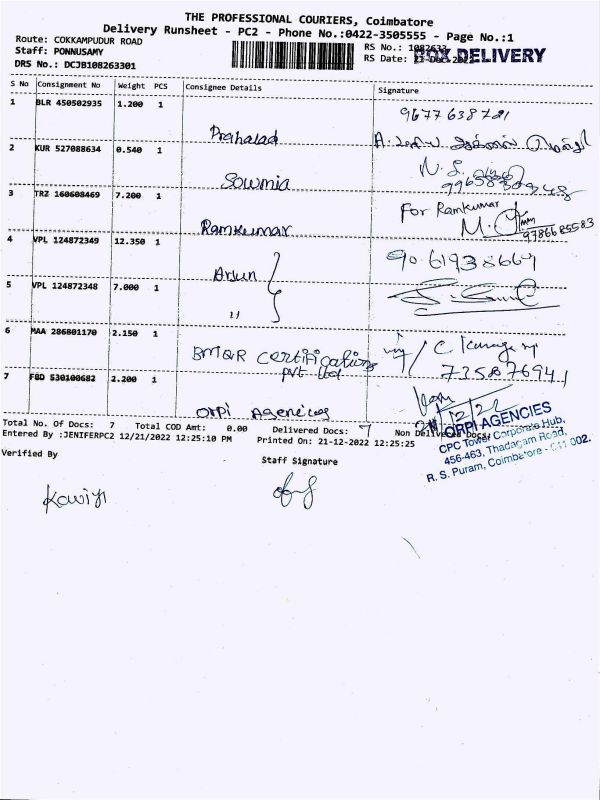 THE PROFESSIONAL COURIERS, Coimbatore
Delivery Runsheet - PC2 - Phone No.:0422-3505555 - Page No.:1
Route: COKKAMPUDUR ROAD
RS No.: 1082633
BOX DELIVERY
Staff: PONNUSAMY
RS Date: 21-Dec-2022
DRS No.: DCJB108263301
S No Consignment No Weight PCS Consignee Details Signature
1 BLR 450502935 1.200 1
Prahalad
2 KUR 527088634 0.540 1
Sowmia
3 TRZ 160608469 7.200 1 For Ramkumar
Ramkumar 9786685583
4 VPL 124872349 12.350 1
Arjun
5 VPL 124872348 7.000 1
"
6 MAA 286801170 2.150 1
BMQR Certifications
pvt ltd
7 FBD 530100682 2.200 1
ORPi Agencies
Total No. Of Docs: 7 Total COD Amt: 0.00 Delivered Docs: 7 Non Delivered Docs:
Entered By :JENIFERPC2 12/21/2022 12:25:10 PM Printed On: 21-12-2022 12:25:25
ORPI AGENCIES
CPC Tower Corporate Hub,
456-463, Thadagam Road,
R. S. Puram, Coimbatore - 641 002.
Verified By
Staff Signature